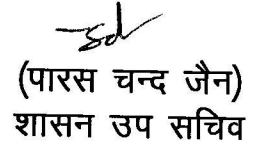 Sd
(पारस चन्द जैन)
शासन उप सचिव